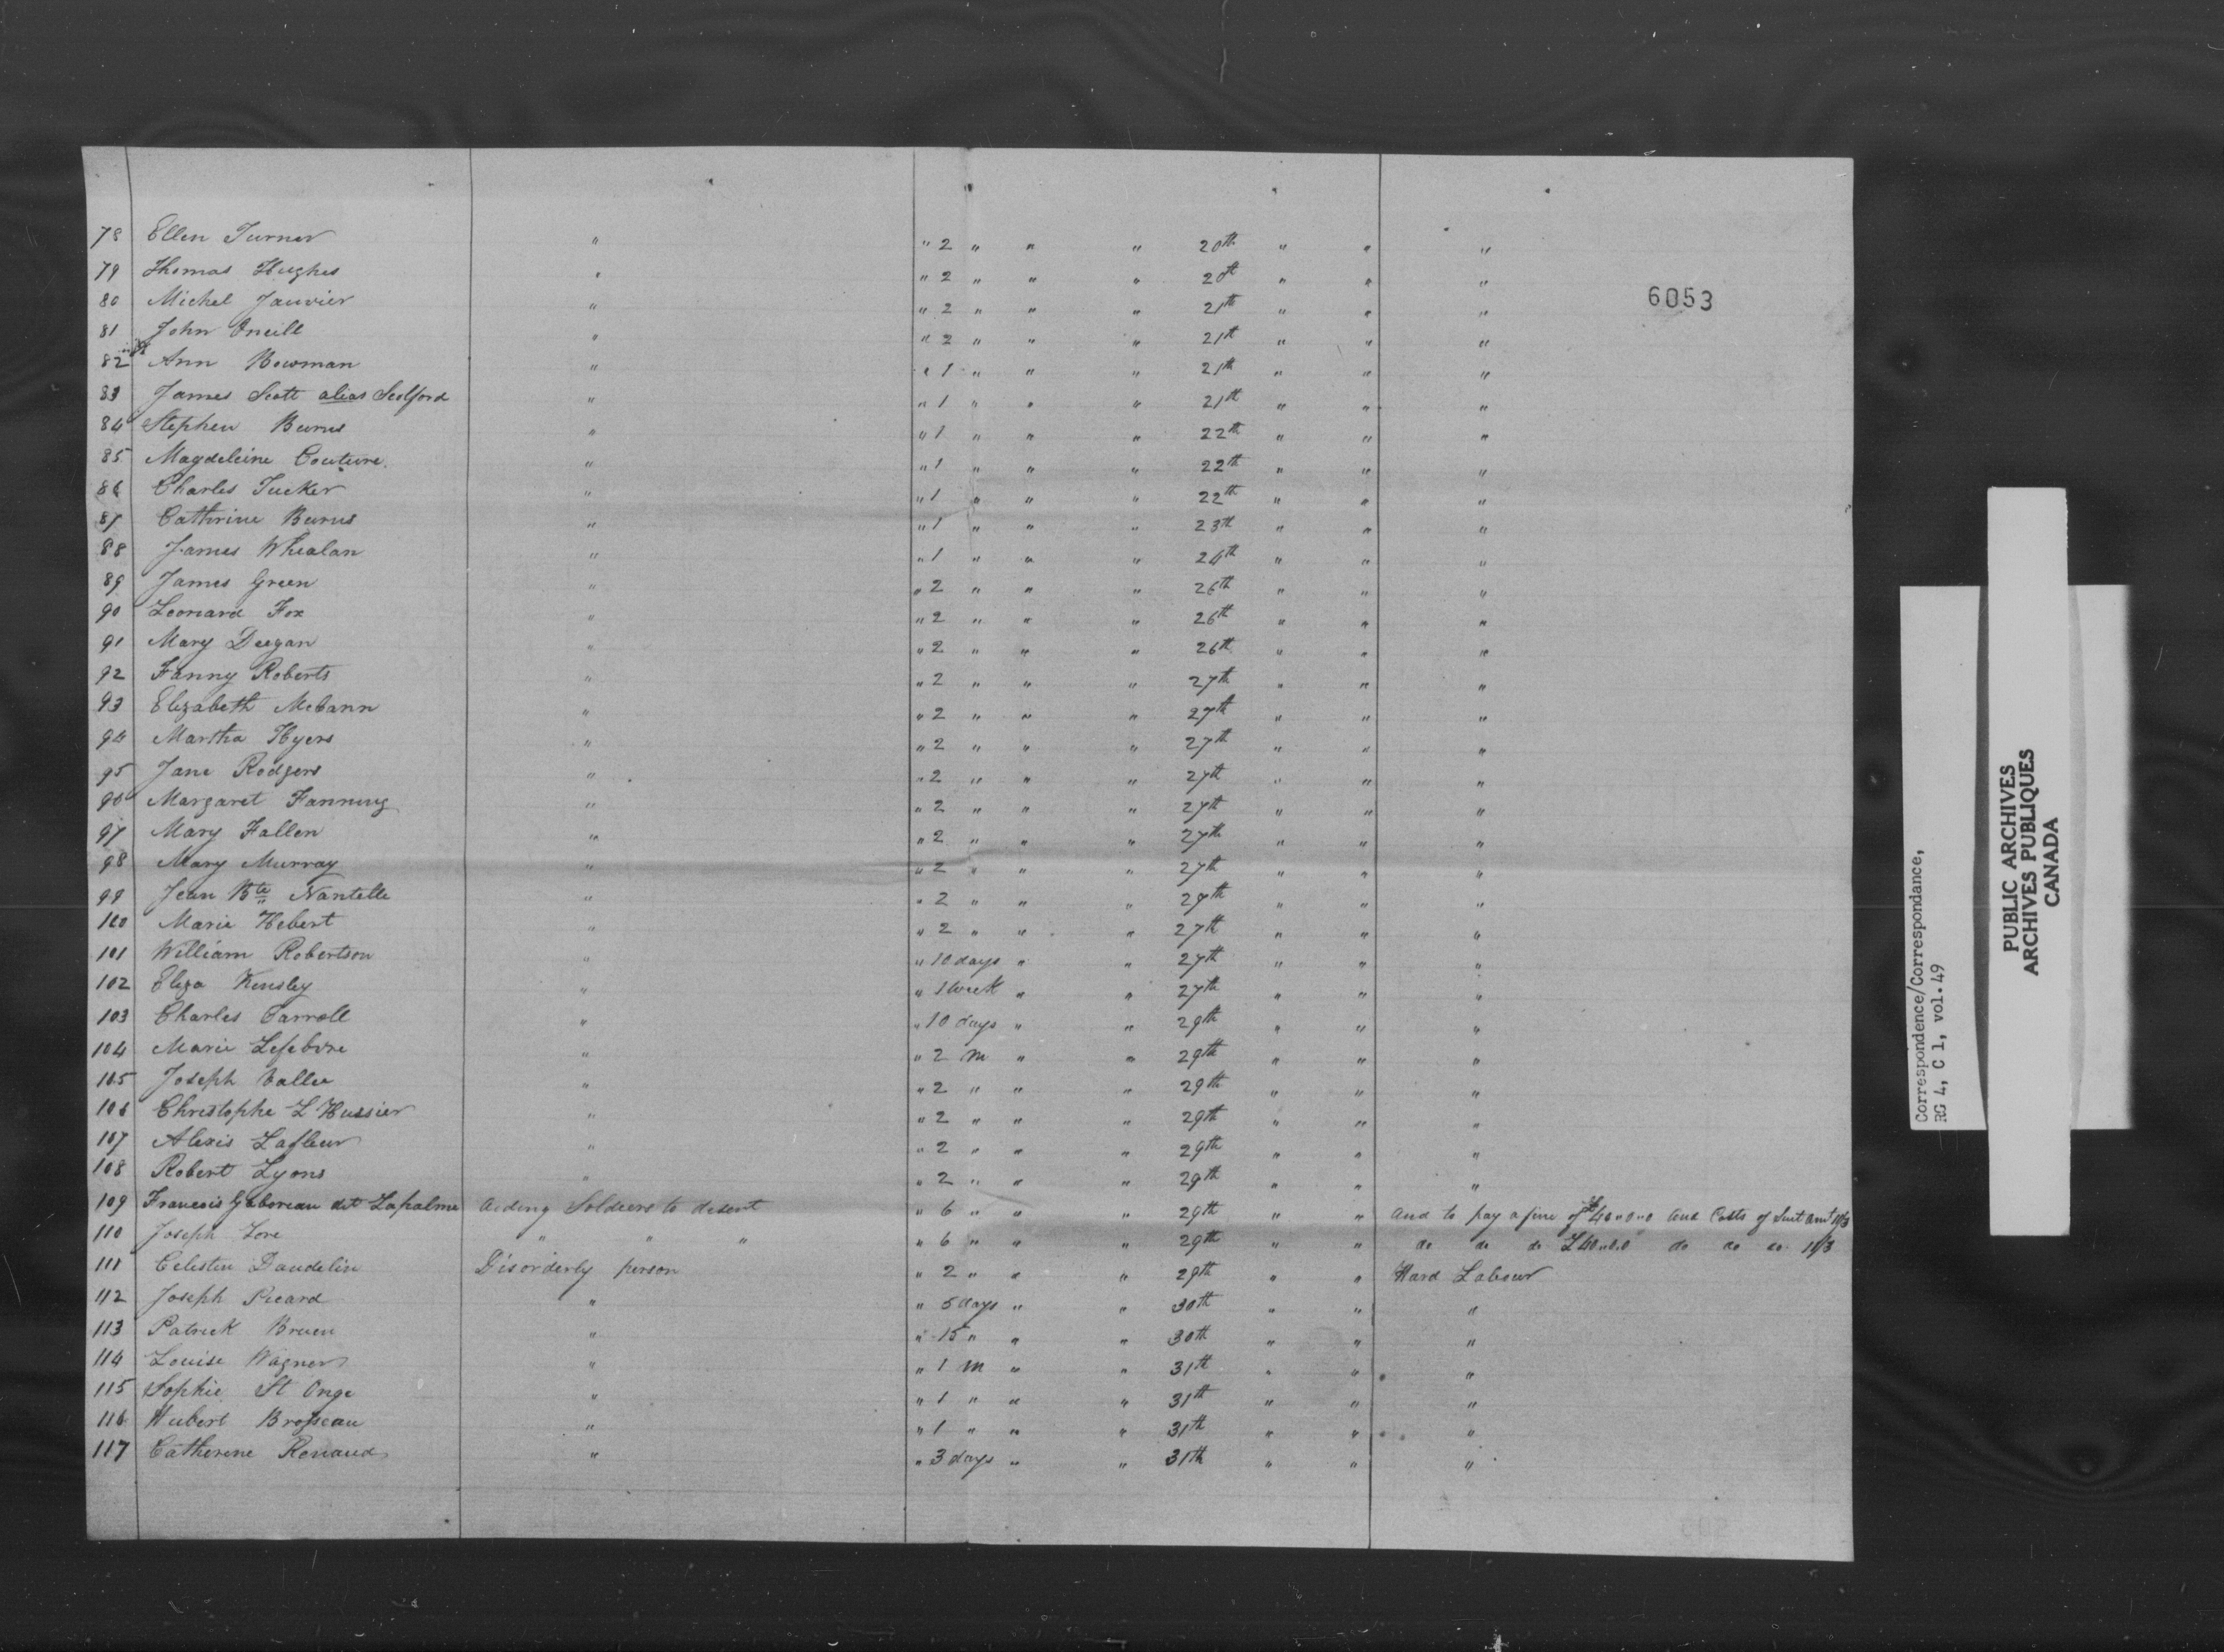 6053
78 Ellen Turner " " 2 " " " 20th " " "
79 Thomas Hughes " " 2 " " " 20th " " "
80 Michel Janvier " " 2 " " " 21th " " "
81 John Oneill " " 2 " " " 21th " " "
82 Ann Bowman " " 1 " " " 21th " " "
83 James Scott alias Scolford " " 1 " " " 21th " " "
84 Stephen Burns " " 1 " " " 22th " " "
85 Magdeleine Couture " " 1 " " " 22th " " "
86 Charles Tucker " " 1 " " " 22th " " "
87 Cathrine Burns " " 1 " " " 23th " " "
88 James Whealan " " 1 " " " 24th " " "
89 James Green " " 2 " " " 26th " " "
90 Leonard Fox " " 2 " " " 26th " " "
91 Mary Deegan " " 2 " " " 26th " " "
92 Fanny Roberts " " 2 " " " 27th " " "
93 Elizabeth McCann " " 2 " " " 27th " " "
94 Martha Hyers " " 2 " " " 27th " " "
95 Jane Rodgers " " 2 " " " 27th " " "
96 Margaret Fanning " " 2 " " " 27th " " "
97 Mary Fallen " " 2 " " " 27th " " "
98 Mary Murray " " 2 " " " 27th " " "
99 Jean Bte Nantelle " " 2 " " " 27th " " "
100 Marie Hebert " " 2 " " " 27th " " "
101 William Robertson " " 10 days " " 27th " " "
102 Eliza Kensley " " 1 Week " " 27th " " "
103 Charles Carroll " " 10 days " " 29th " " "
104 Marie Lefebvre " " 2 m " " 29th " " "
105 Joseph Vallee " " 2 " " " 29th " " "
106 Christophe L Hussier " " 2 " " " 29th " " "
107 Alexis Lafleur " " 2 " " " 29th " " "
108 Robert Lyons " " 2 " " " 29th " " "
109 Francois Gaboreau dit Lapalme Aiding Soldiers to desert " 6 " " " 29th " " and to pay a fine of £40"0"0 and Costs of Suit amt 11/3
110 Joseph Lore " " " " 6 " " " 29th " " do do do £40"0.0 do do do 11/3
111 Celestin Daudelin Disorderly person " 2 " " " 29th " " Hard Labour
112 Joseph Picard " " 5 days " " 30th " " "
113 Patrick Bruen " " 15 " " " 30th " " "
114 Louise Wagner " " 1 m " " 31th " " "
115 Sophie St Onge " " 1 " " " 31th " " "
116 Hubert Brosseau " " 1 " " " 31th " " "
117 Catherine Renaud " " 3 days " " 31th " " "
Correspondence/Correspondance,
RG 4, C 1, vol. 49
PUBLIC ARCHIVES
ARCHIVES PUBLIQUES
CANADA